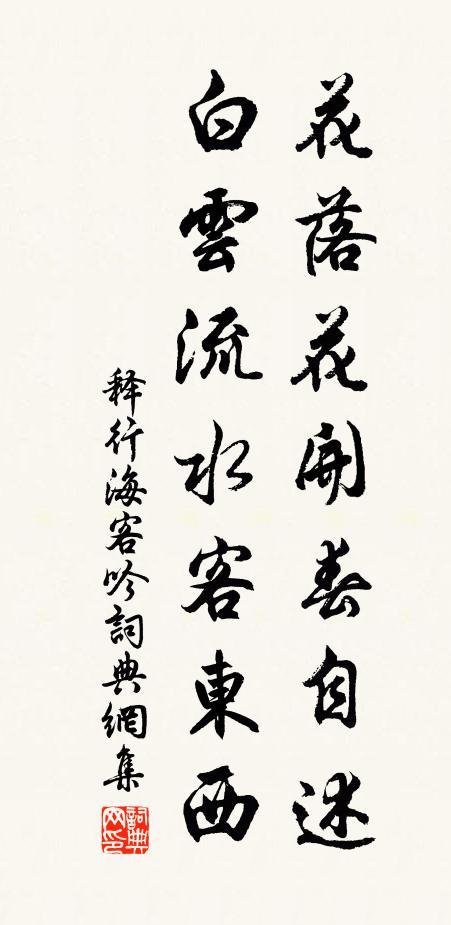 花落花開春自迷
白雲流水客東西
释行海客吟詞典網集
詞典网印